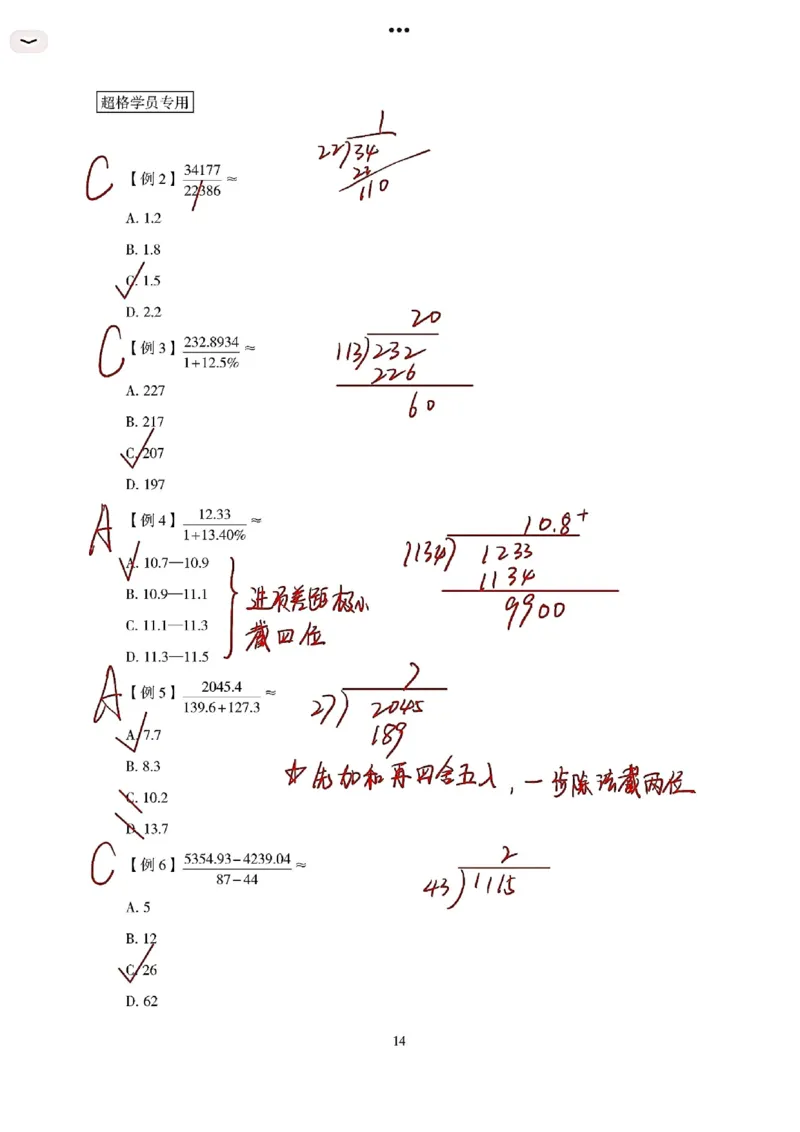 超格学员专用
C 【例 2】34177/22386≈
1
22)34
22
110
A. 1.2
B. 1.8
C. 1.5
D. 2.2
C 【例 3】232.8934/1+12.5%≈
20
113)232
226
60
A. 227
B. 217
C. 207
D. 197
A 【例 4】12.33/1+13.40%≈
10.8+
1134)1233
1134
9900
A. 10.7—10.9
B. 10.9—11.1
C. 11.1—11.3
D. 11.3—11.5
选项差距极小
截四位
A 【例 5】2045.4/139.6+127.3≈
7
27)2045
189
A. 7.7
B. 8.3
C. 10.2
D. 13.7
先加和再四舍五入，一步除法截两位
C 【例 6】5354.93−4239.04/87−44≈
2
43)1115
A. 5
B. 12
C. 26
D. 62
14